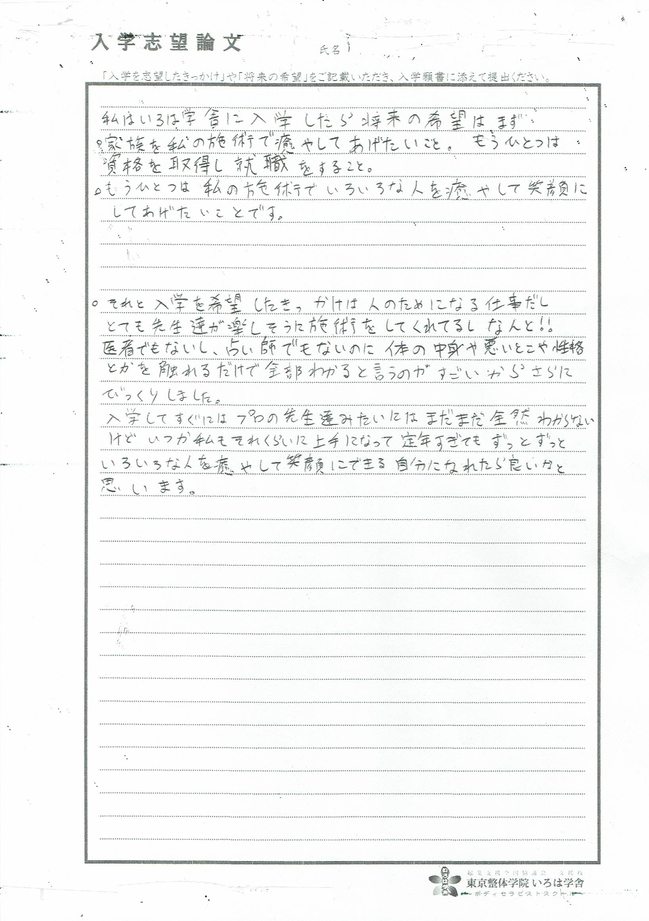 入学志望論文
氏名
「入学を志望したきっかけ」や「将来の希望」をご記載いただき、入学願書に添えて提出ください。
私はいろは学舎に入学したら将来の希望はまず
。家族を私の施術で癒やしてあげたいこと。もうひとつは
資格を取得し就職をすること。
。もうひとつは私の施術でいろいろな人を癒やして笑顔に
してあげたいことです。
。それと入学を希望したきっかけは人のためになる仕事だし
とても先生達が楽しそうに施術をしてくれてるしなんと!!
医者でもないし、占い師でもないのに体の中身や悪いとこや性格
とかを触れるだけで全部わかると言うのがすごいからさらに
びっくりしました。
入学してすぐにはプロの先生達みたいにはまだまだ全然わからない
けどいつか私もそれくらいに上手になって定年すぎてもずっとずっと
いろいろな人を癒やして笑顔にできる自分になれたら良いかと
思います。
東京整体学院 いろは学舎
ボディセラピストスクール